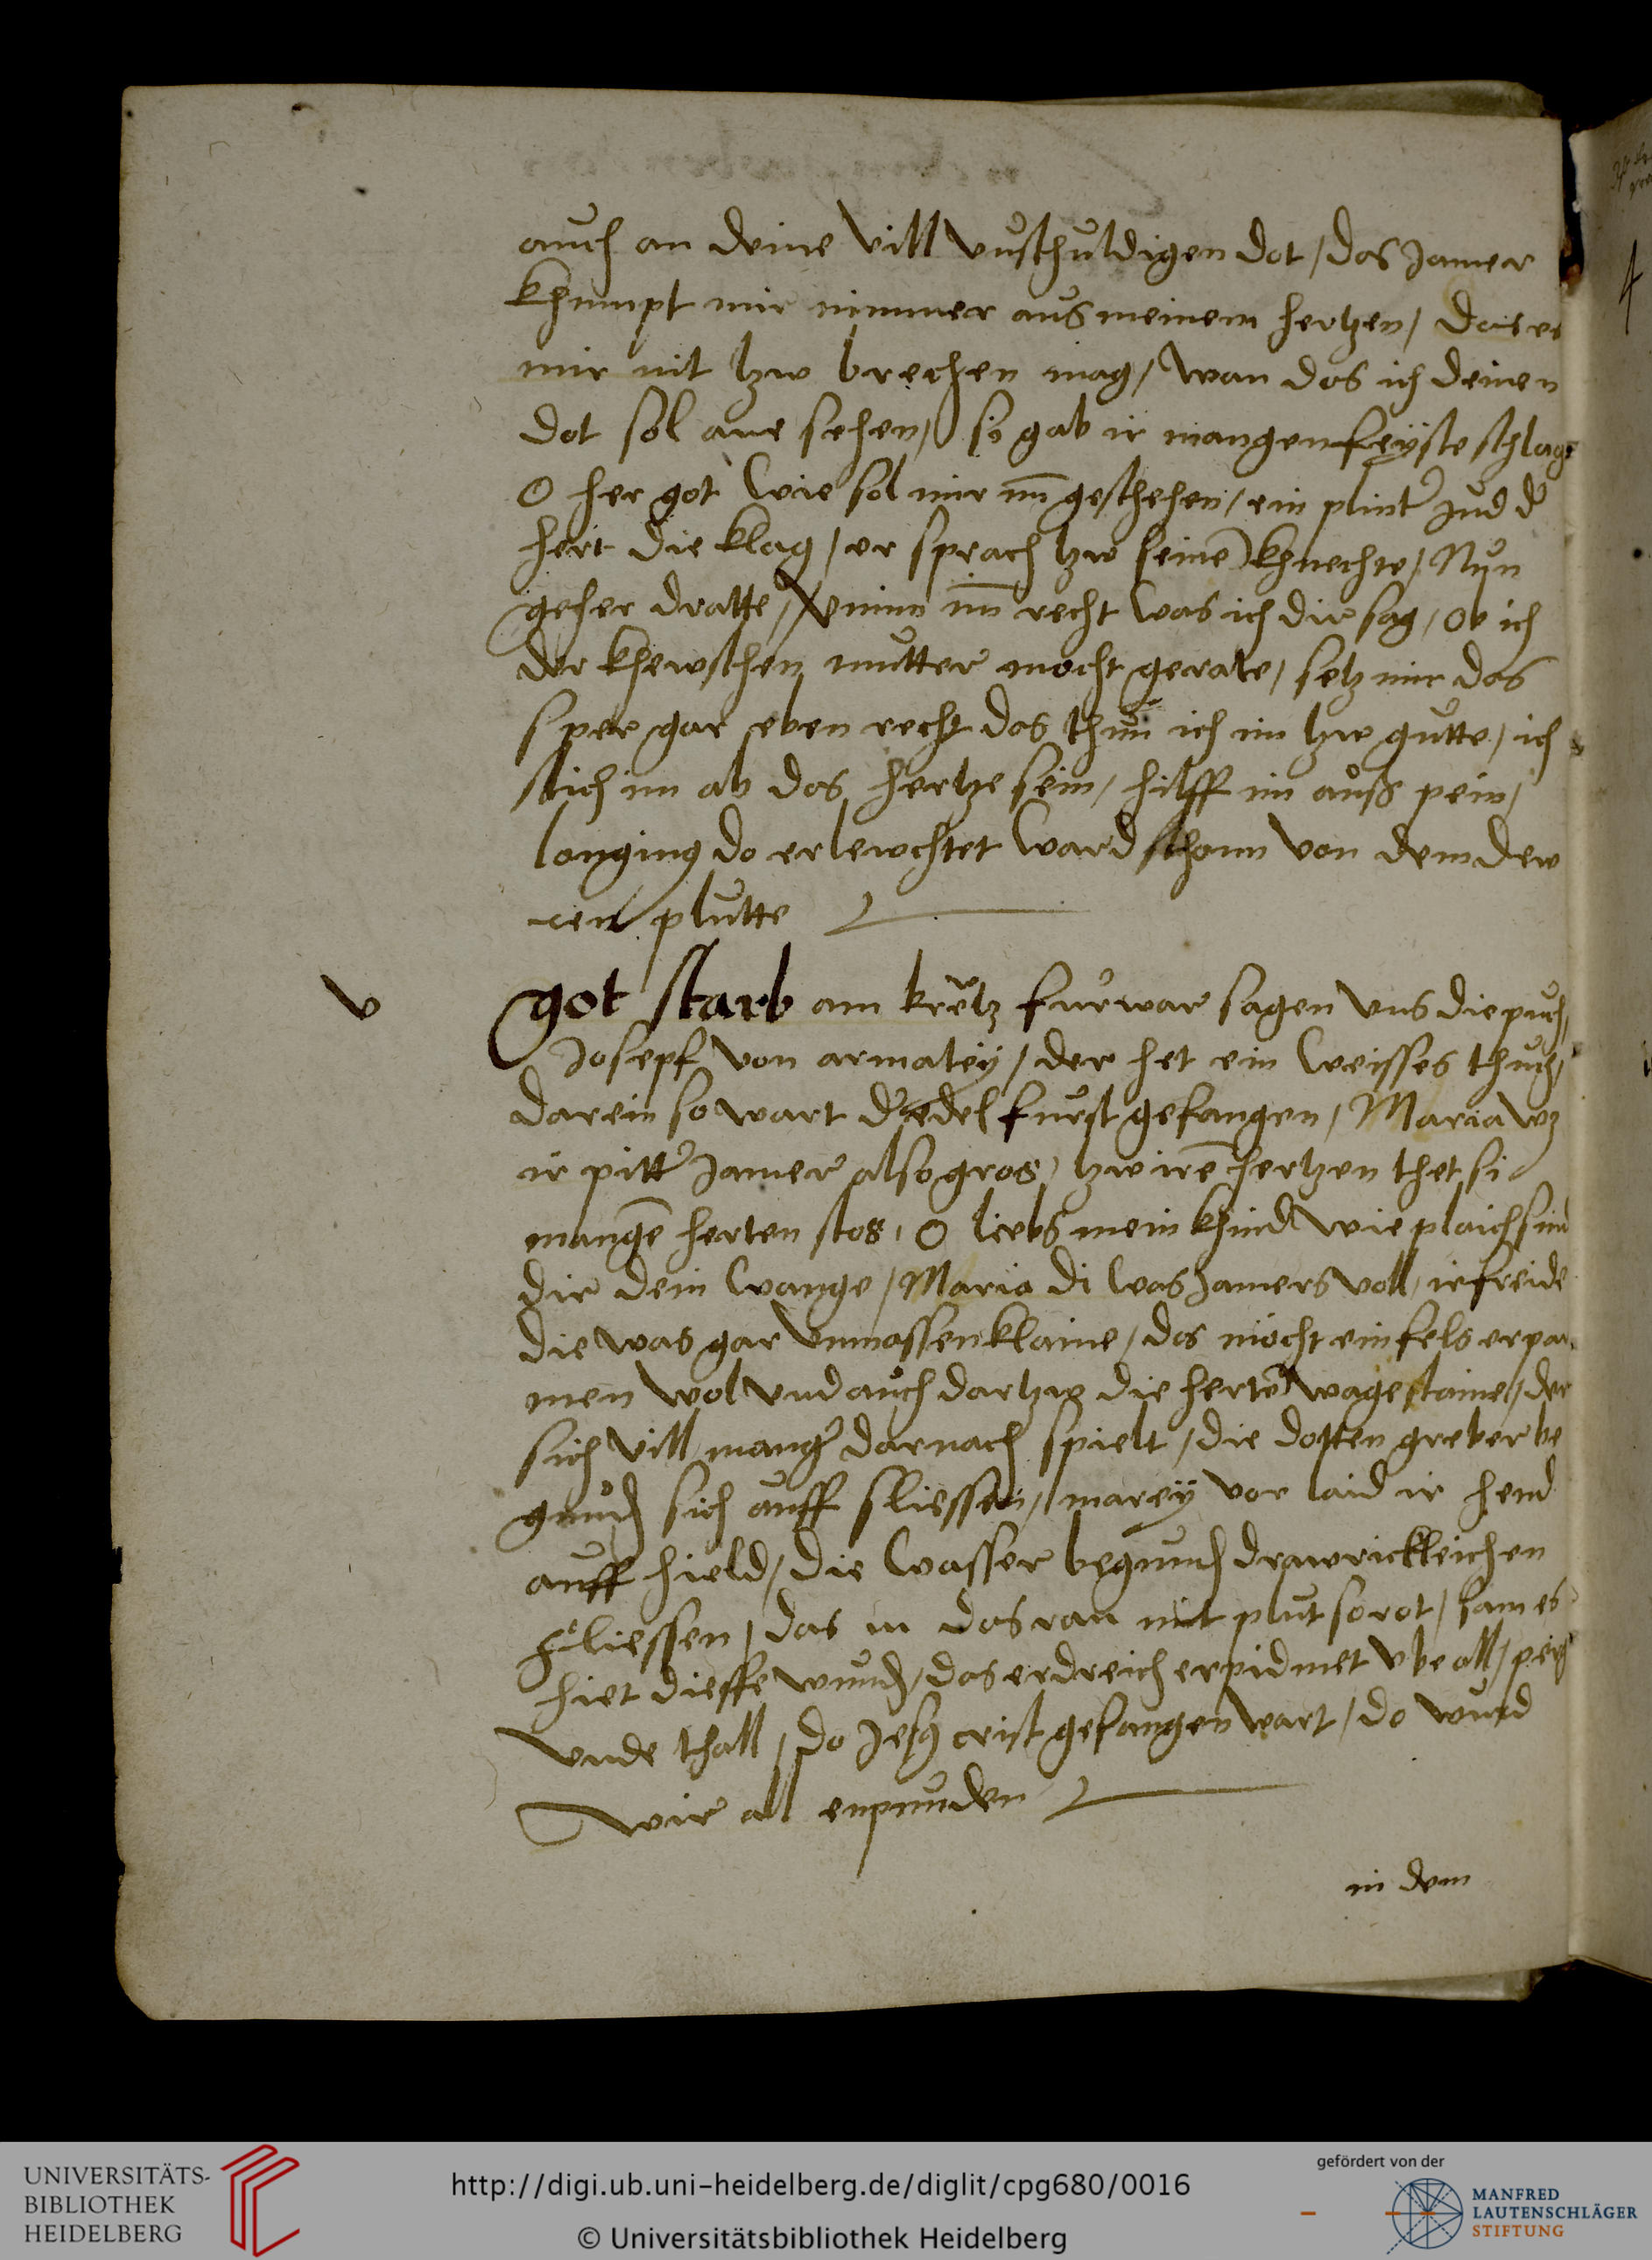 auch an deine vill vnschuldigen dot / das Jamer
khumpt mir nimmer aus meinem hertzen / das es
mir nit tzw brechen mag / wan das ich deinen
dot sol ane sehen / si gab ir mangen feyste schlag
O her got wie sol mir nu geschehen / ein plinter Jud der
hert die klag / er sprach tzw seinē khnechte / Nun
geher dratte / vnd im recht was ich dir sag / ob ich
der khewschen mutter mocht gerate / setz mir das
sper gar eben recht das thun ich im tzw gutte / ich
stich im ab das hertze sein / hilff im auß pein /
longinus do erlewchtet ward schonn von dem dew
ren plutte
v
got starb am kreutz furwar sagen vns die puch /
Josepf von armatey / der het ein weisses thuch /
darein so wart der edel furst gefangen / Maria wz
ir pitter Jamer also gros / tzw irē hertzen thet si
mangē herten stos / O liebs mein khind wie plaich sind
dir dein wange / Maria di was Jamers voll / ir freide
die was gar vnmassen klaine / das mocht ein fels erpar
men wol vnd auch dartzw die hertē wagestaine / der
sich vill manger darnach spielt / die dotten greber be
gund sich auff sliessen / marey vor laid ir hend
auff hield / die wasser begund drawrickleichen
fliessen / das in das ran mit plut so rot / sam es
hiet dieffe wund / das erdreich erpidmet vbe all / perg
vnde thall / do Jesus crist gefangen wart / do wurd
wir all enpunden
in dem
4
UNIVERSITÄTS-
BIBLIOTHEK
HEIDELBERG
http://digi.ub.uni-heidelberg.de/diglit/cpg680/0016
© Universitätsbibliothek Heidelberg
gefördert von der
MANFRED
LAUTENSCHLÄGER
STIFTUNG